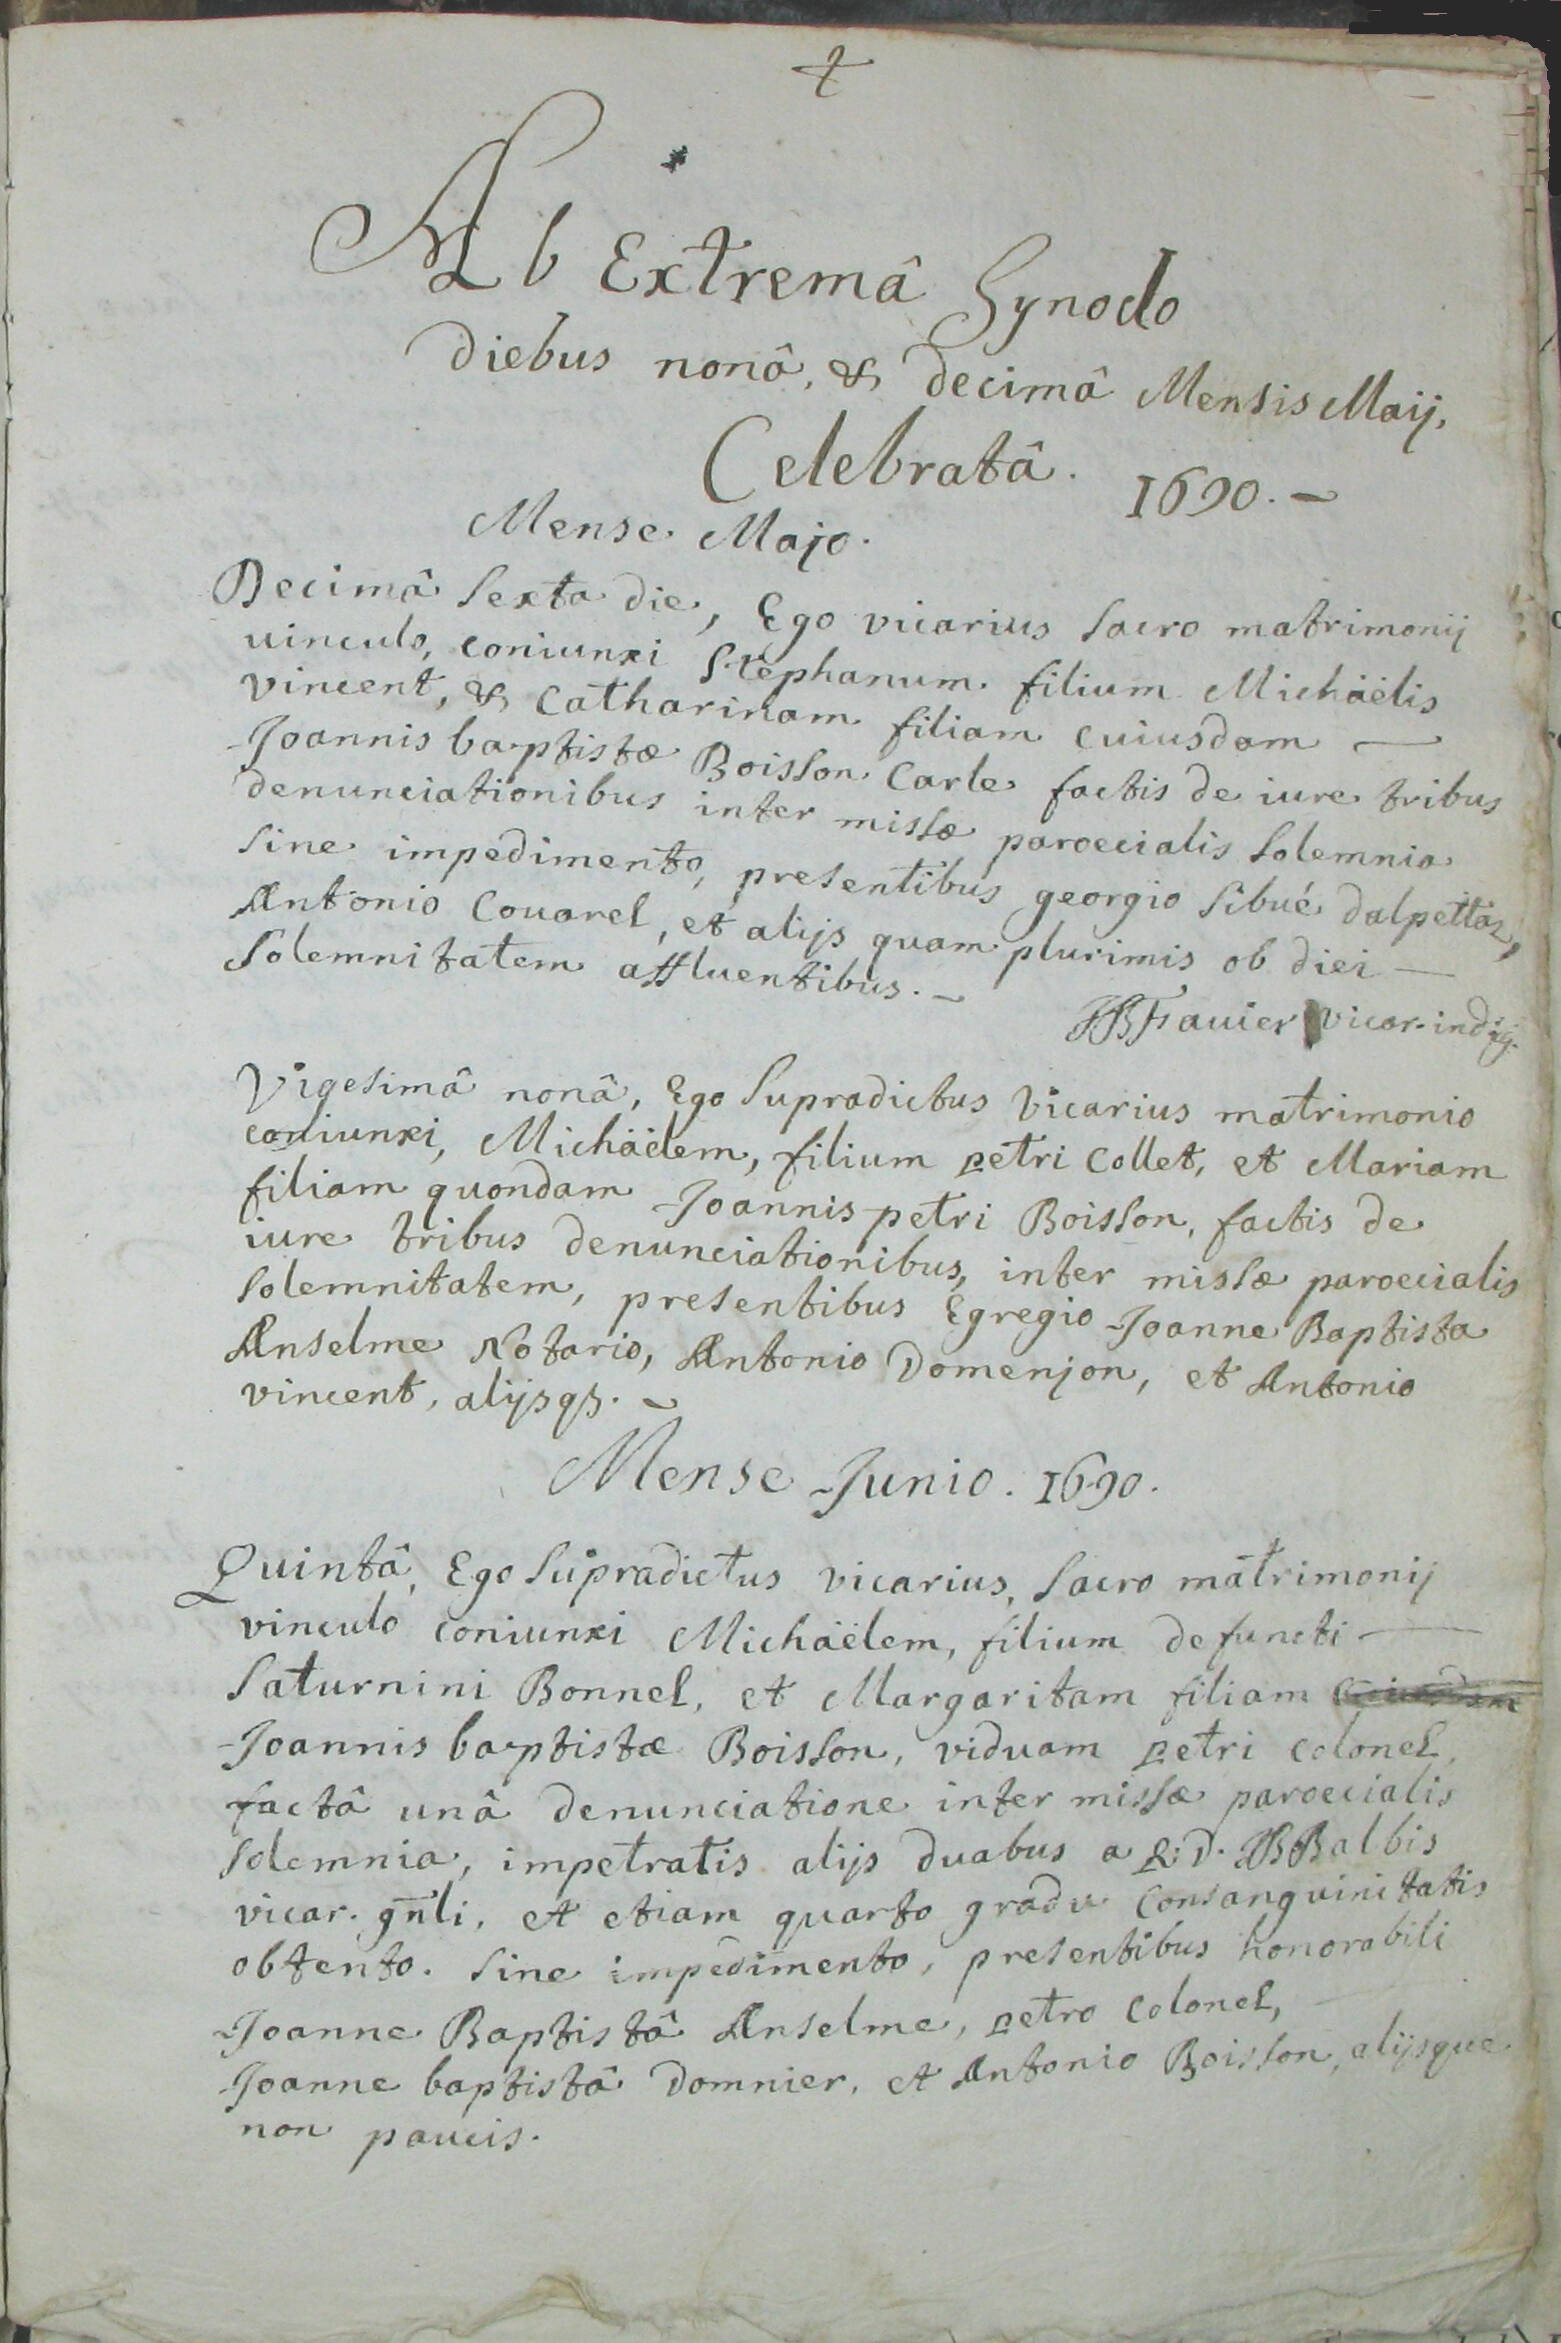 Ab Extremâ Synodo
diebus nonâ, & decimâ Mensis Maij,
Celebratâ. 1690.-
Mense Majo.
Decimâ sexta die, Ego vicarius sacro matrimonij
uinculo, coniunxi Stephanum filium Michäelis
vincent, & Catharinam filiam cuiusdam —
Joannis baptistæ Boisson Carle factis de iure tribus
denunciationibus inter missæ paroecialis solemnia
sine impedimento, presentibus georgio sibué dalpettaz,
Antonio Couarel, et alijs quam plurimis ob diei —
solemnitatem affluentibus.-
JB Fauier vicar. indig.
Vigesimâ nonâ, Ego supradictus Vicarius matrimonio
coniunxi, Michäelem, filium petri Collet, et Mariam
filiam quondam Joannis petri Boisson, factis de
iure tribus denunciationibus, inter missæ paroecialis
solemnitatem, presentibus Egregio Joanne Baptista
Anselme Notario, Antonio Domenjon, et Antonio
vincent, alijsqs.-
Mense Junio. 1690.
Quintâ, Ego supradictus vicarius, sacro matrimonij
vinculo coniunxi Michäelem, filium defuncti —
Saturnini Bonnel, et Margaritam filiam
Joannis baptistæ Boisson, viduam petri Colonel,
factâ unâ denunciatione inter missæ paroecialis
solemnia, impetratis alijs duabus a R. D. JB Balbis
vicar. gn̄li, et etiam quarto gradu Consanguinitatis
obtento. sine impedimento, presentibus honorabili
Joanne Baptistâ Anselme, petro Colonel,
Joanne baptistâ Domnier, et Antonio Boisson, alijsque
non paucis.